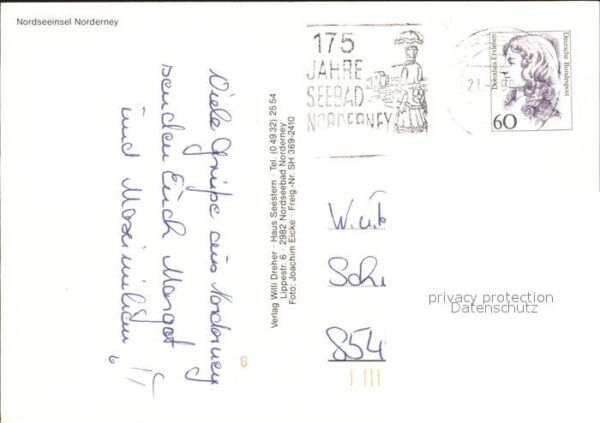 Nordseeinsel Norderney
Viele Grüße aus Norderney
senden Euch Margot
und Maximilian
Verlag Willi Dreher · Haus Seestern · Tel. (0 49 32) 25 54
Lippestr. 6 · 2982 Nordseebad Norderney
Foto: Joachim Eicke · Freig.-Nr. SH 369-2410
175
JAHRE
SEEBAD
NORDERNEY
Dorothea Erxleben
Deutsche Bundespost
60
W. u.
Sch
854
privacy protection
Datenschutz
6